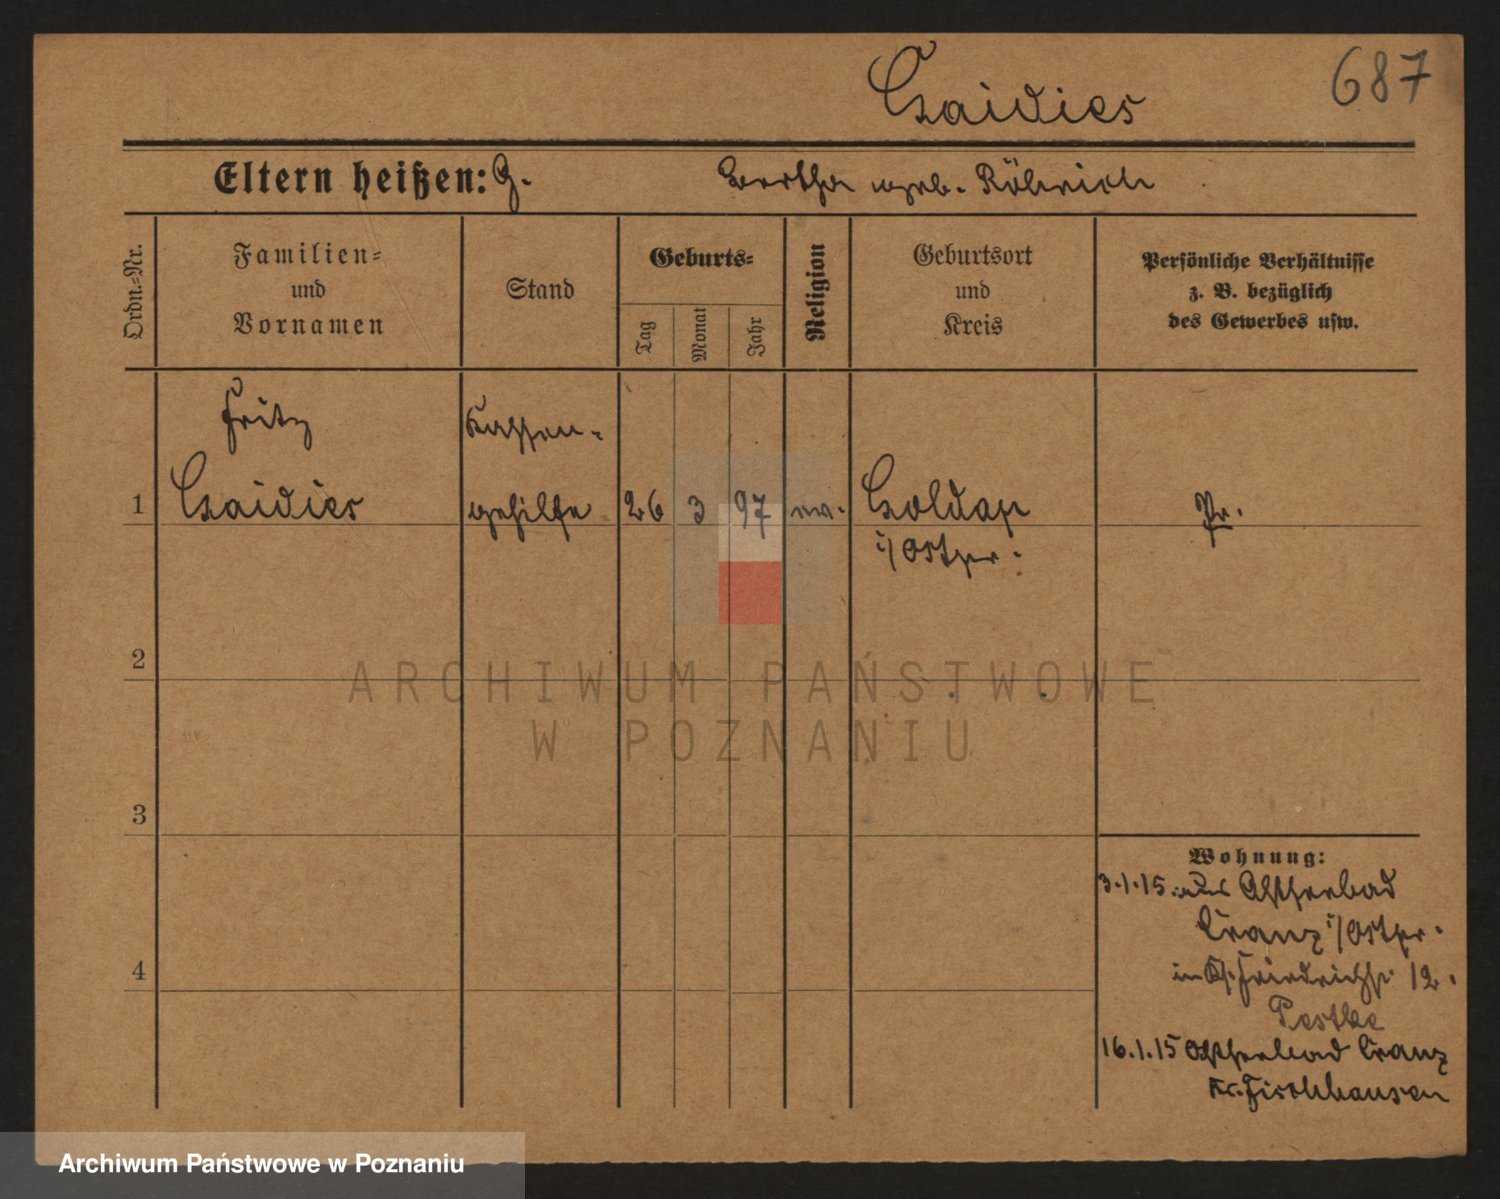 687
Czaidies
Eltern heißen: G. Bertha geb. Röhrich
Ordn.-Nr.
Familien-
und
Vornamen
Stand
Geburts-
Tag
Monat
Jahr
Religion
Geburtsort
und
Kreis
Persönliche Verhältnisse
z. B. bezüglich
des Gewerbes usw.
Fritz
Kassen-
1 Czaidies gehilfe 26 3 97 ev. Goldap Pr.
i/Ostpr.
2
ARCHIWUM PAŃSTWOWE
W POZNANIU
3
Wohnung:
3.1.15. aus Ostseebad
Cranz i/Ostpr.
4
in Friedrichstr. 12.
Pestke
16.1.15 Ostseebad Cranz
Kr. Fischhausen
Archiwum Państwowe w Poznaniu